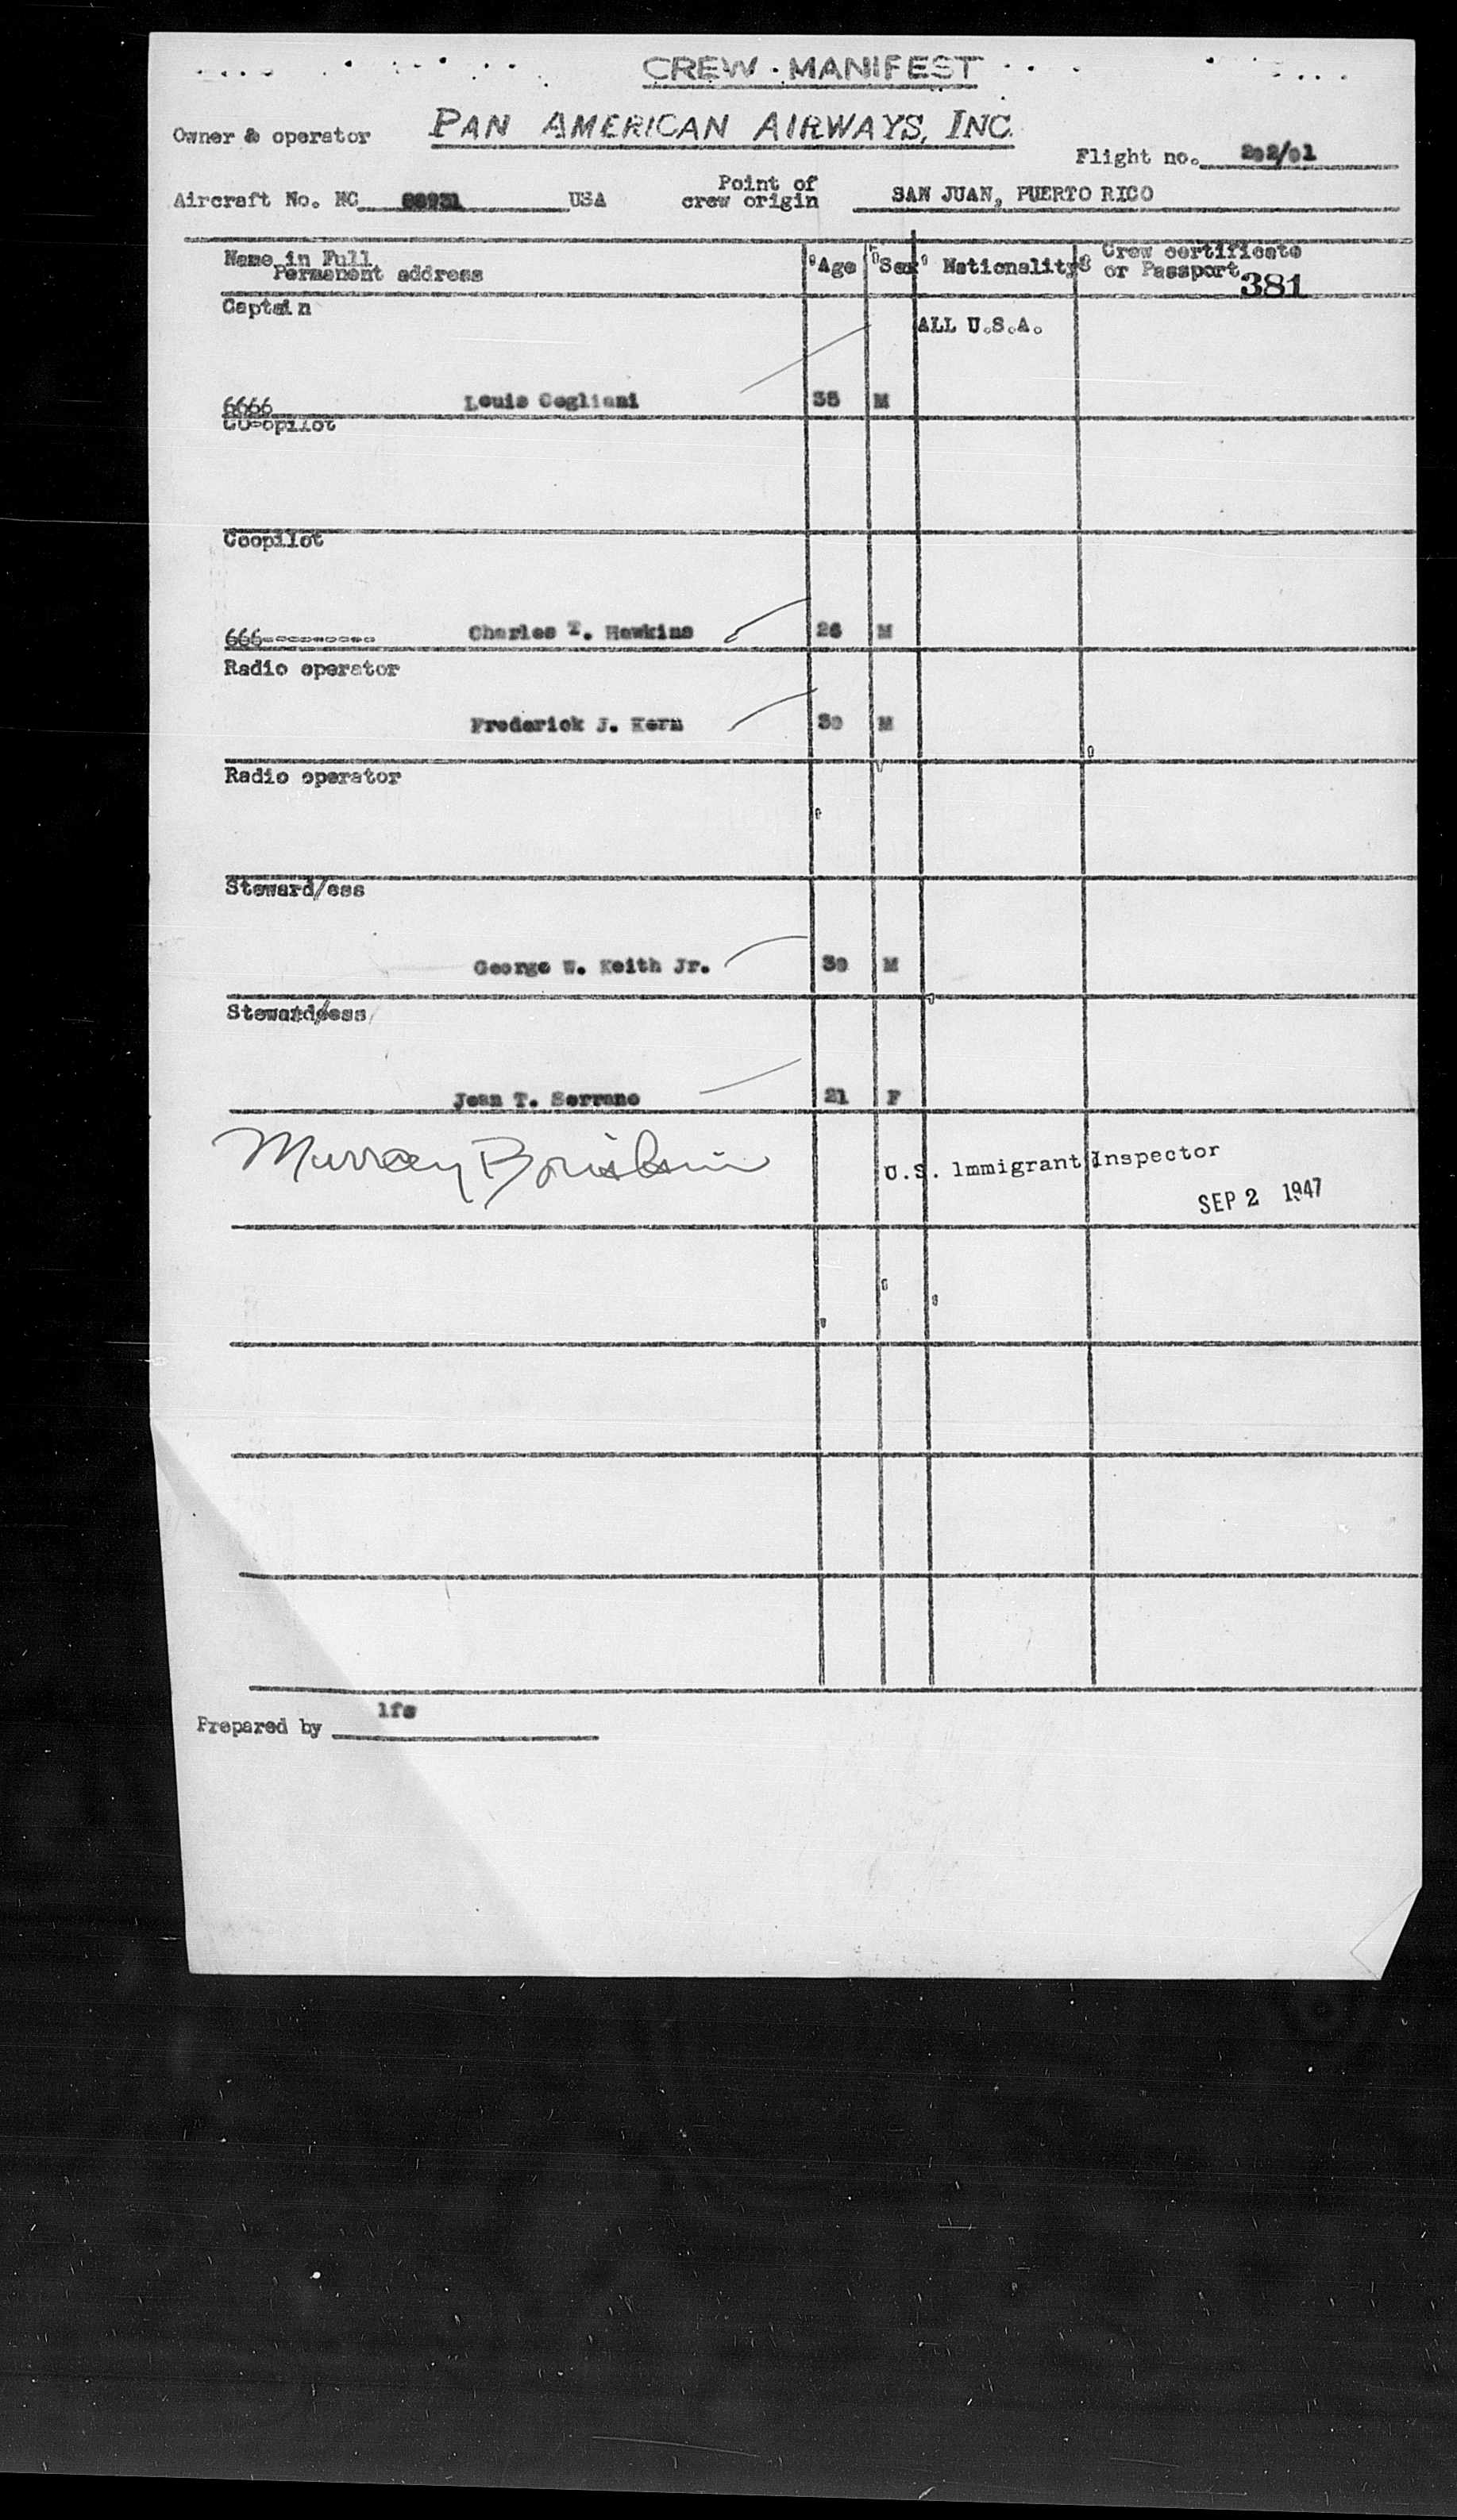 CREW MANIFEST
Owner & operator PAN AMERICAN AIRWAYS, INC.
Flight no. 202/01
Aircraft No. NC 88931 USA Point of crew origin SAN JUAN, PUERTO RICO
Name in Full Age Sex Nationality Crew certificate
Permanent address or Passport
381
Captain
ALL U.S.A.
Louis Cogliani 35 M
Co-opilot
Coopilot
Charles T. Hawkins 26 M
Radio operator
Frederick J. Kern 30 M
Radio operator
Steward/ess
George W. Keith Jr. 30 M
Steward/ess
Jean T. Serrano 21 F
Murray
U.S. Immigrant Inspector
SEP 2 1947
lfs
Prepared by